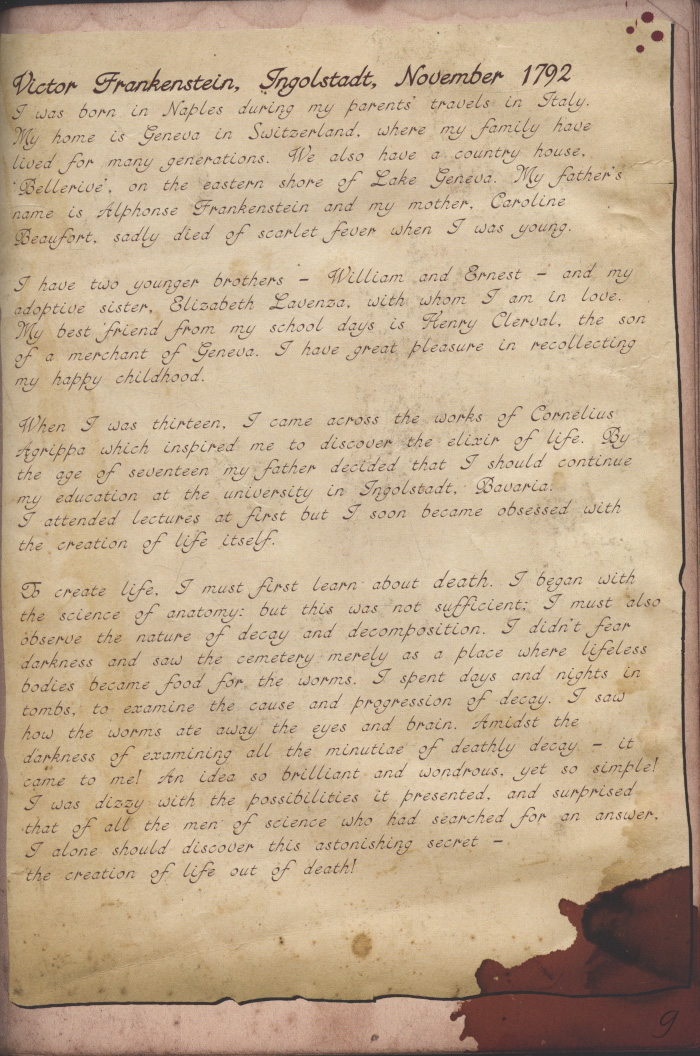 Victor Frankenstein, Ingolstadt, November 1792
I was born in Naples during my parents' travels in Italy.
My home is Geneva in Switzerland, where my family have
lived for many generations. We also have a country house,
'Bellerive', on the eastern shore of Lake Geneva. My father's
name is Alphonse Frankenstein and my mother, Caroline
Beaufort, sadly died of scarlet fever when I was young.
I have two younger brothers – William and Ernest – and my
adoptive sister, Elizabeth Lavenza, with whom I am in love.
My best friend from my school days is Henry Clerval, the son
of a merchant of Geneva. I have great pleasure in recollecting
my happy childhood.
When I was thirteen, I came across the works of Cornelius
Agrippa which inspired me to discover the elixir of life. By
the age of seventeen my father decided that I should continue
my education at the university in Ingolstadt, Bavaria.
I attended lectures at first but I soon became obsessed with
the creation of life itself.
To create life, I must first learn about death. I began with
the science of anatomy: but this was not sufficient; I must also
observe the nature of decay and decomposition. I didn't fear
darkness and saw the cemetery merely as a place where lifeless
bodies became food for the worms. I spent days and nights in
tombs, to examine the cause and progression of decay. I saw
how the worms ate away the eyes and brain. Amidst the
darkness of examining all the minutiae of deathly decay – it
came to me! An idea so brilliant and wondrous, yet so simple!
I was dizzy with the possibilities it presented, and surprised
that of all the men of science who had searched for an answer,
I alone should discover this astonishing secret –
the creation of life out of death!
9